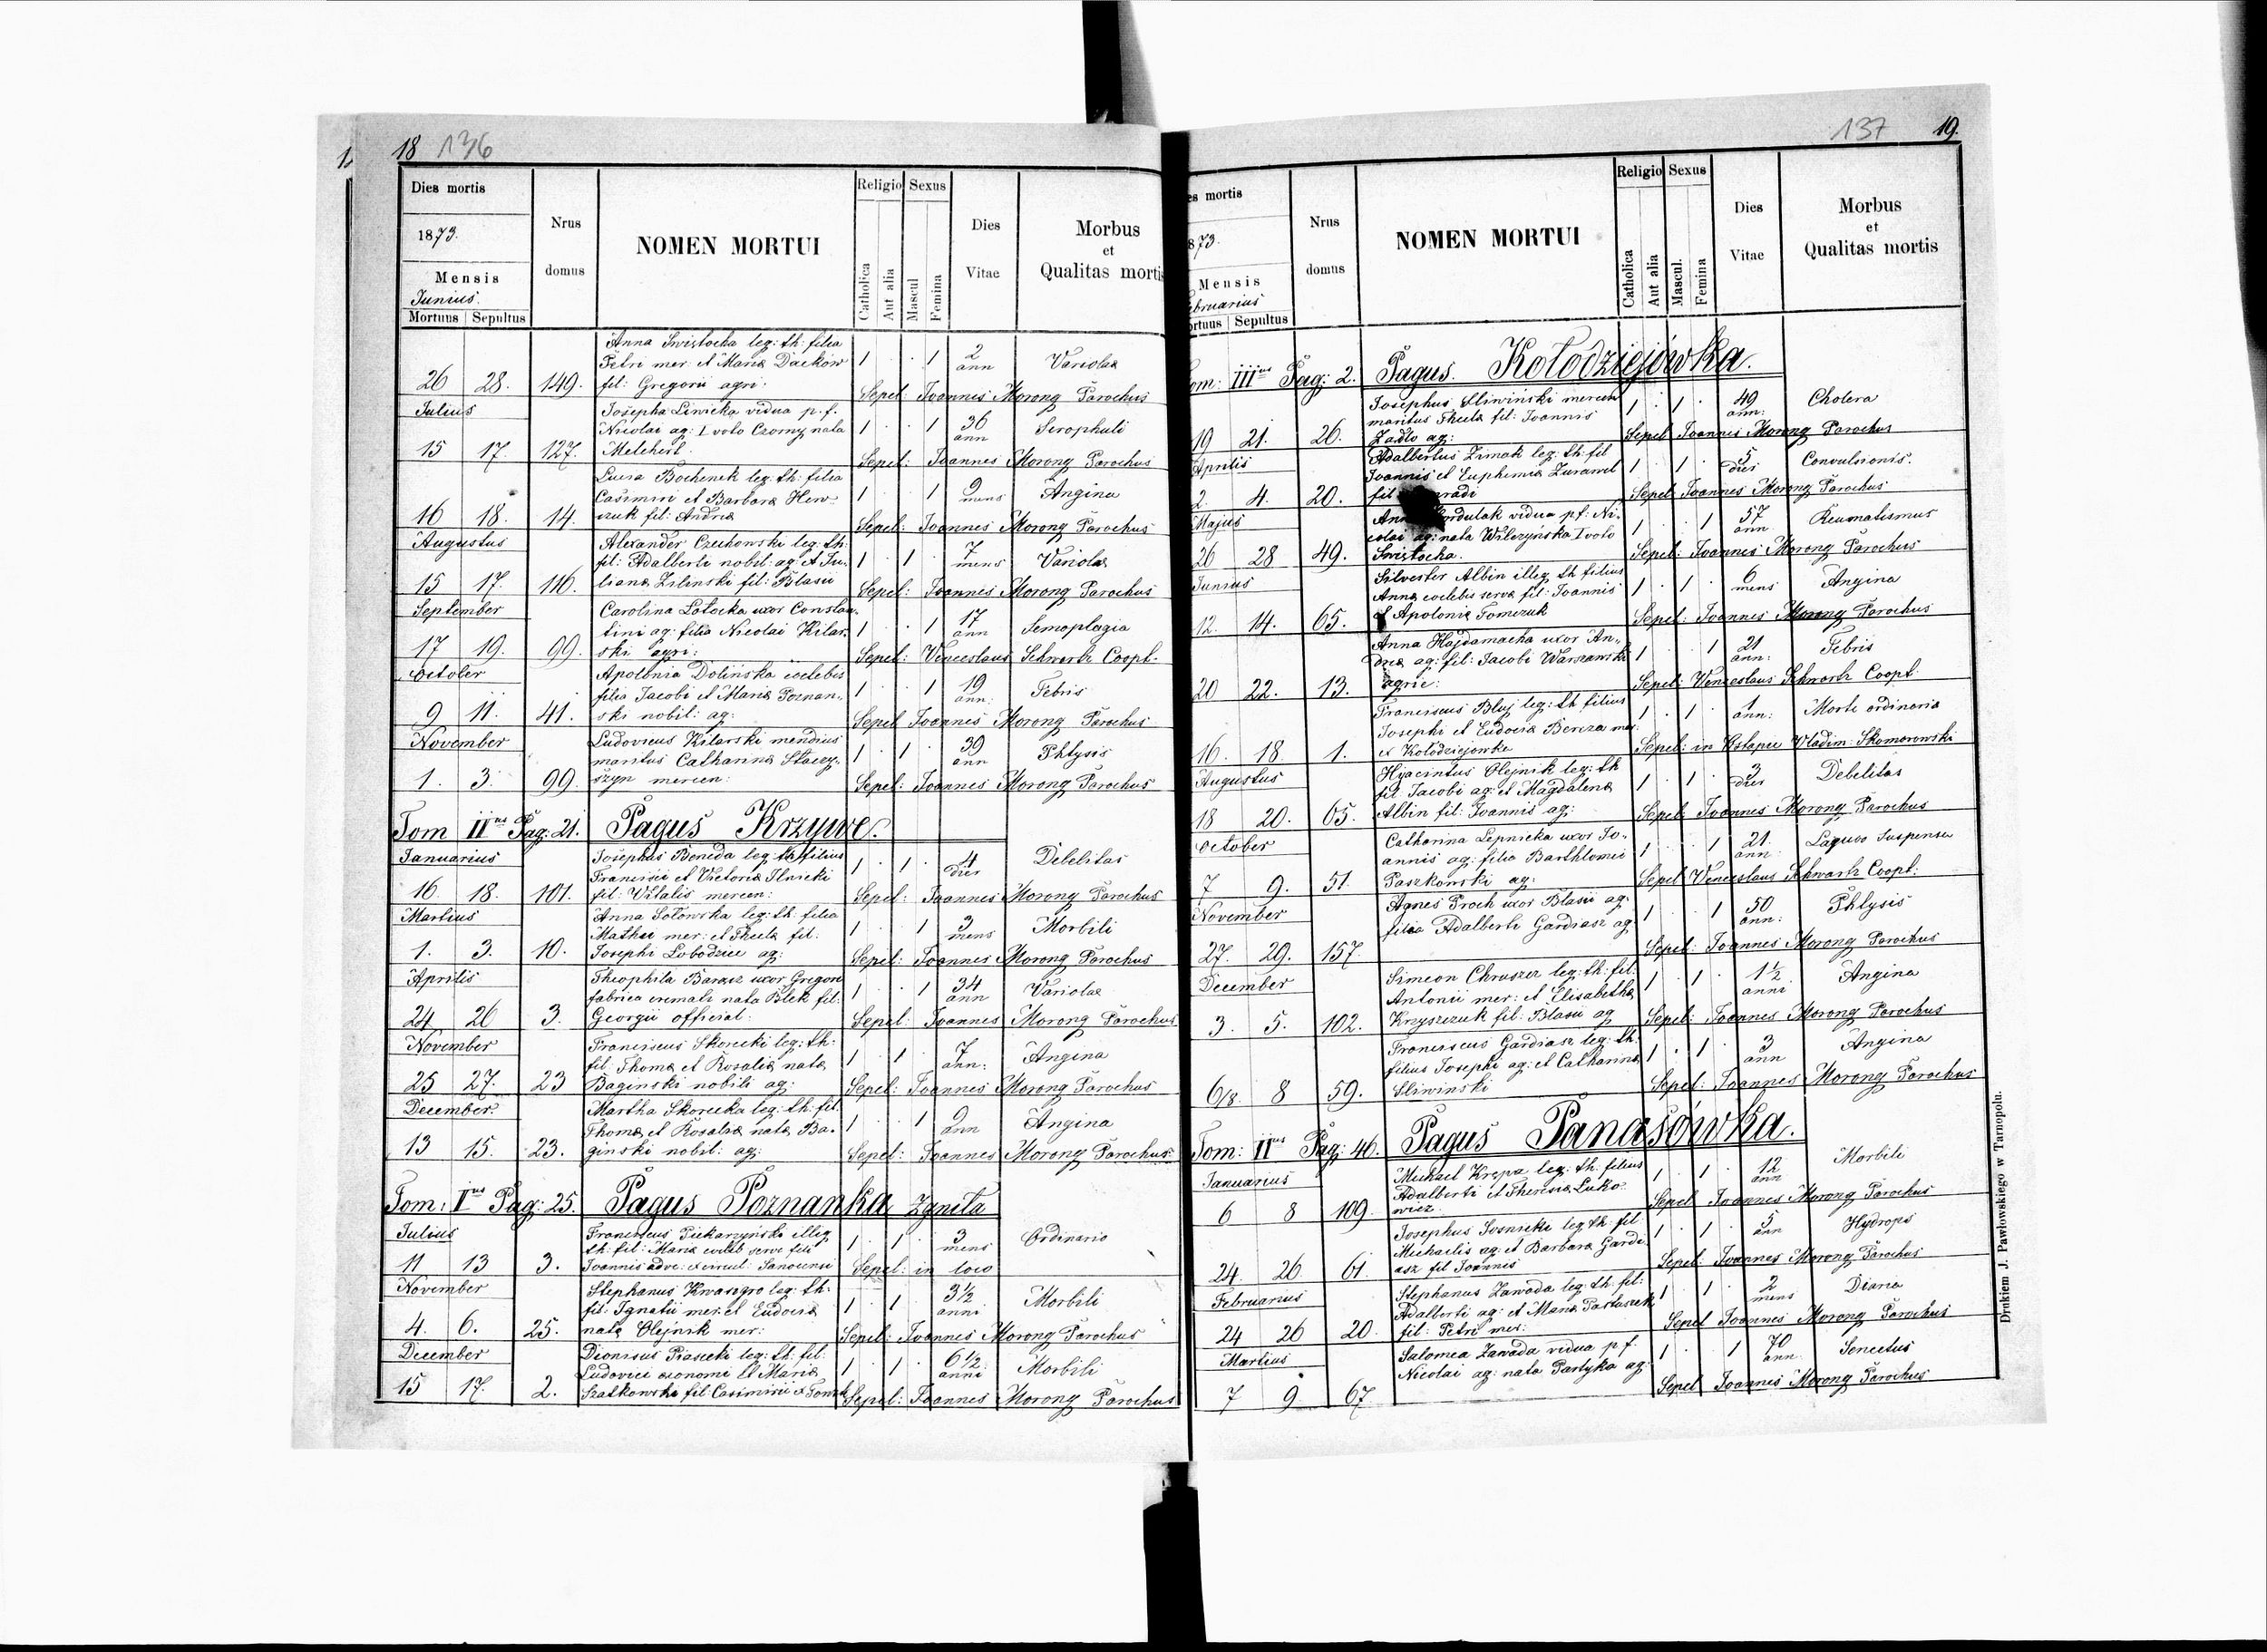 18 136
Dies mortis
1873.
Mensis
Junius.
Mortuus Sepultus
Nrus domus
NOMEN MORTUI
Religio Sexus
Catholica Aut alia Mascul Femina
Dies Vitae
Morbus et Qualitas mortis
Anna Swistocka leg: th: filia
Petri mer: et Maria Dackow 1 . . 1 2 ann Variolae
26 28. 149. fil: Gregorii agri: Sepel: Joannes Morong Parochus
Julius
Josepha Liwicka vidua p. f.
Nicolai ag: I voto Czorny nata 1 . . 1 36 ann Scrophuli
15 17. 127. Melchert. Sepel: Joannes Morong Parochus
Luisa Bochenek leg: th: filia
Casimiri et Barbara Hew- 1 . . 1 9 mens Angina
16 18. 14. czuk fil: Andreæ Sepel: Joannes Morong Parochus
Augustus
Alexander Czechowski leg: th:
fil: Adalberti nobil: ag: et Ju- 1 . 1 . 7 mens Variolae
15 17. 116. liana Zilinski fil: Blasii Sepel: Joannes Morong Parochus
September
Carolina Lotocka uxor Constan-
tini ag: filia Nicolai Kilar- 1 . . 1 17 ann Semoplagia
17 19. 99. ski agri: Sepel: Venceslaus Schwarz Coopt.
October
Apolonia Dolinska coelebs
filia Jacobi et Maria Poznan- 1 . . 1 19 ann: Febris
9 11. 41. ski nobil: ag: Sepel Joannes Morong Parochus
November
Ludovicus Kilarski mendius
maritus Catharina Staczy- 1 . 1 . 39 ann Phtysis
1. 3. 99. szyn mercen: Sepel: Joannes Morong Parochus
Tom IIus Pag: 21. Pagus Krzywe.
Januarius
Josephus Beneda leg: th filius
Francisci et Victoria Ilnicki 1 . 1 . 4 dier Debelitas
16. 18. 101. fil: Vitalis mercen: Sepel: Joannes Morong Parochus
Martius
Anna Sołowska leg: th: filia
Mathei mer: et Thecla fil: 1 . . 1 3 mens Morbili
1. 3. 10. Josephi Lobodzice ag: Sepel: Joannes Morong Parochus
Aprilis
Theophila Barasz uxor Gregori
fabrica cremati nata Blek fil: 1 . . 1 34 ann Variolae
24 26 3. Georgii official: Sepel: Joannes Morong Parochus
November
Franciscus Skorecki leg: th:
fil: Thoma et Rosalia nata 1 . 1 . 7 ann: Angina
25 27. 23 Baginski nobili ag: Sepel: Joannes Morong Parochus
December.
Martha Skorecka leg: th: fil:
Thoma et Rosalia nata Ba- 1 . . 1 9 ann Angina
13 15. 23. ginski nobil: ag: Sepel: Joannes Morong Parochus
Tom: Ius Pag: 25. Pagus Poznanka Zgniła
Julius
Franciscus Piekarzynski illeg
th: fil: Maria coeleb serva filii 1 . 1 . 3 mens Ordinario
11 13 3. Joannis Sepel: in loco
November
Stephanus Kwasegro leg: th:
fil: Ignatii mer: et Eudocia 1 . 1 . 3½ anni Morbili
4. 6. 25. nata Olejnik mer: Sepel: Joannes Morong Parochus
December
Dionisus Piasecki leg: th: fil:
Ludovici oeconomi et Maria 1 . 1 . 6½ anni Morbili
15 17. 2. Szatkowski fil: Casimirii Sepel: Joannes Morong Parochus
137 19.
es mortis
873.
Mensis
ebruarius
ortuus Sepultus
Nrus domus
NOMEN MORTUI
Religio Sexus
Catholica Aut alia Mascul. Femina
Dies Vitae
Morbus et Qualitas mortis
om: IIIus Pag: 2. Pagus. Kołodziejówka.
Josephus Sliwinski mercen
maritus Thecla fil: Joannis 1 . 1 . 49 ann: Cholera
19 21. 26. Zadło ag: Sepel Joannes Morong Parochus
Aprilis
Adalbertus Zimak leg: th: fil
Joannis et Euphemia Zurawel 1 . 1 . 5 dier Convulsionis.
2. 4. 20. fil radi Sepel Joannes Morong Parochus
Majus
Ann ordulak vidua p: f: Ni-
colai ag: nata Wilczynska I voto 1 . . 1 57 ann Reumatismus
26 28 49. Swistocka. Sepel: Joannes Morong Parochus
Junius
Silvester Albin illeg th filius
Anna coelebis serva fil: Joannis 1 . 1 . 6 mens Angina
12. 14. 65. et Apolonia Tomczuk Sepel: Joannes Morong Parochus
Anna Hajdamacka uxor An-
drea ag: fil: Jacobi Warszawski 1 . . 1 21 ann: Febris
20 22. 13. agric: Sepel: Venceslaus Schwarz Coopt.
Franciscus Bluj leg: th filius
Josephi et Eudocia Bereza mer 1 . 1 . 1 ann: Morte ordinaria
16. 18. 1. ex Kołodziejowka Sepel: in Ostapie Vladim: Skomorowski
Augustus
Hyacintus Olejnik leg: th
fil: Jacobi ag: et Magdalena 1 . 1 . 3 dier Debelitas
18 20. 65. Albin fil: Joannis ag: Sepel: Joannes Morong Parochus
October
Catharina Lepnicka uxor Jo-
annis ag: filia Barthlomei 1 . . 1 21. ann: Laqueo Suspensa
7 9. 51. Paszkowski ag: Sepel Venceslaus Schwarz Coopt:
November
Agnes Proch uxor Blasii ag:
filia Adalberti Gardiasz ag 1 . . 1 50 ann: Phtysis
27. 29. 157. Sepel: Joannes Morong Parochus
December
Simeon Chruszez leg: th: fil:
Antonii mer: et Elisabetha 1 . 1 . 1½ anni Angina
3. 5. 102. Krzyszczuk fil: Blasii ag Sepel: Joannes Morong Parochus
Franciscus Gardiasz leg: th:
filius Josephi ag: et Catharina 1 . 1 . 3 ann Angina
6/8 8 59. Sliwinski Sepel: Joannes Morong Parochus
Tom: IIus Pag: 46. Pagus Panasówka.
Januarius
Michael Krepa leg: th: filius
Adalberti et Theresia Luko- 1 . 1 . 12 ann Morbili
6 8 109. wicz. Sepel Joannes Morong Parochus
Josephus Sosnicki leg th: fil:
Michaelis ag: et Barbara Gardi- 1 . 1 . 5 ann Hydrops
24 26 61. asz fil Joannis Sepel: Joannes Morong Parochus
Februarius
Stephanus Zawada leg: th: fil:
Adalberti ag: et Maria Partaszek 1 . 1 . 2 mens Diarea
24 26 20. fil: Petri mer: Sepel Joannes Morong Parochus
Martius
Salomea Zawada vidua p. f.
Nicolai ag: nata Partyka ag: 1 . . 1 70 ann Senectus
7 9 67 Sepel Joannes Morong Parochus
Drukiem J. Pawłowskiego w Tarnopolu.